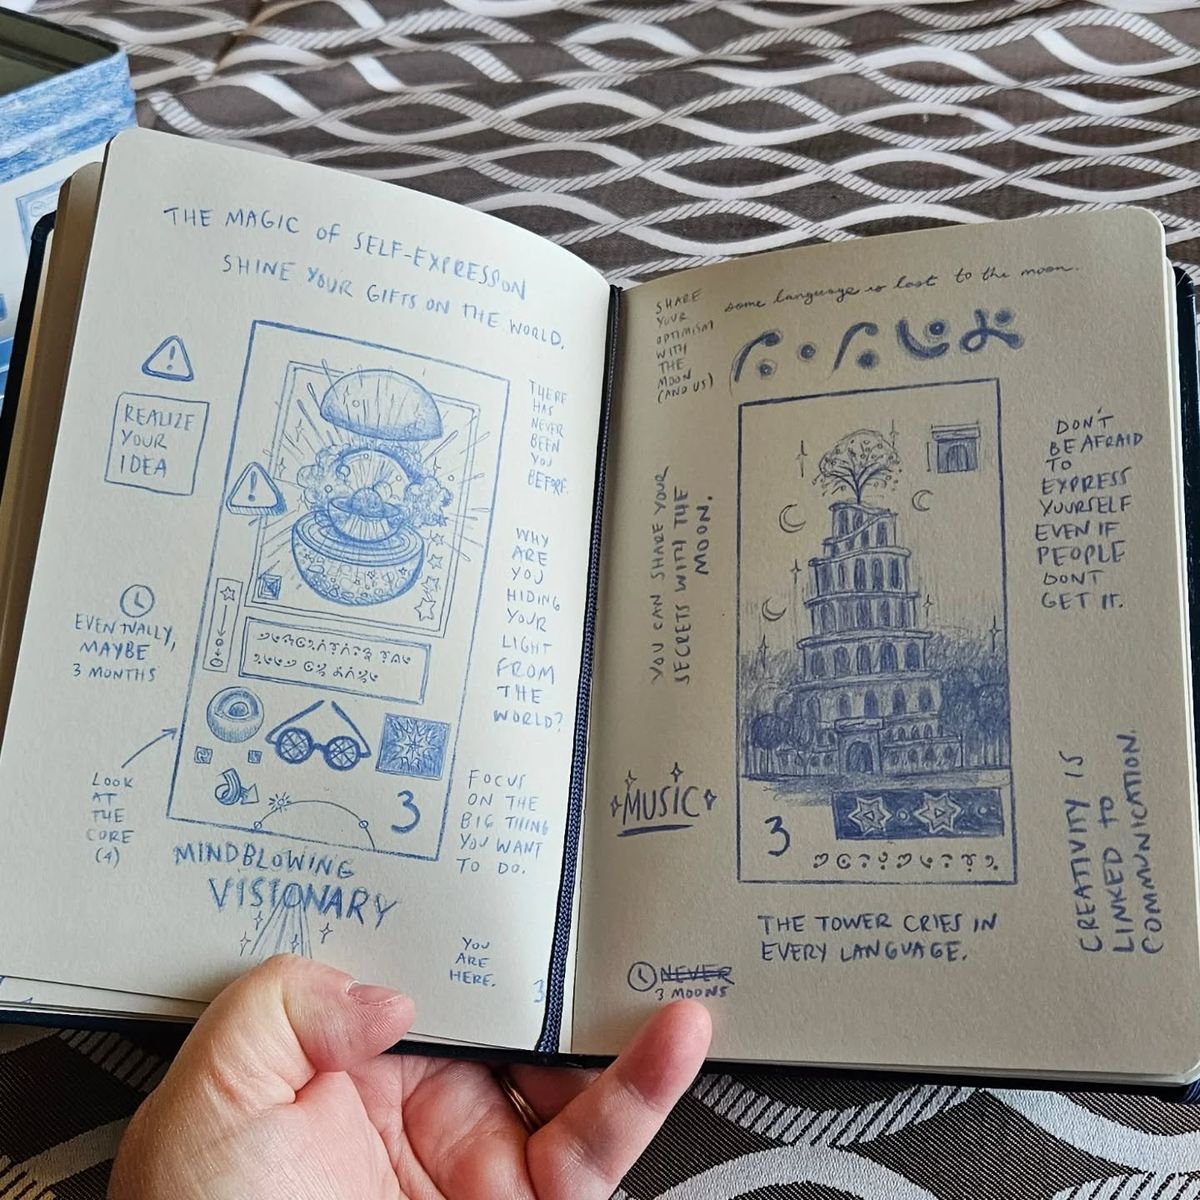 THE MAGIC OF SELF-EXPRESSION
SHINE YOUR GIFTS ON THE WORLD.
REALIZE
YOUR
IDEA
EVENTUALLY,
MAYBE
3 MONTHS
LOOK
AT
THE
CORE
(4)
THERE
HAS
NEVER
BEEN
YOU
BEFORE.
WHY
ARE
YOU
HIDING
YOUR
LIGHT
FROM
THE
WORLD?
FOCUS
ON THE
BIG THING
YOU WANT
TO DO.
3
MINDBLOWING
VISIONARY
YOU
ARE
HERE.
3
some language is lost to the moon.
SHARE
YOUR
OPTIMISM
WITH
THE
MOON
(AND US)
YOU CAN SHARE YOUR
SECRETS WITH THE
MOON.
MUSIC
DON'T
BE AFRAID
TO
EXPRESS
YOURSELF
EVEN IF
PEOPLE
DONT
GET IT.
CREATIVITY IS
LINKED TO
COMMUNICATION.
3
THE TOWER CRIES IN
EVERY LANGUAGE.
NEVER
3 MOONS